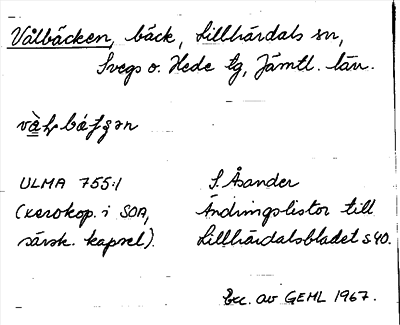 Vålbäcken, bäck, Lillhärdals sn,
Svegs o. Hede tg, Jämtl. län.
ULMA 755:1
(xerokop. i SOA,
särsk. kapsel).
S. Åsander
Ändringslistor till
Lillhärdalsbladet s 40.
Exc. av GEHL 1967.